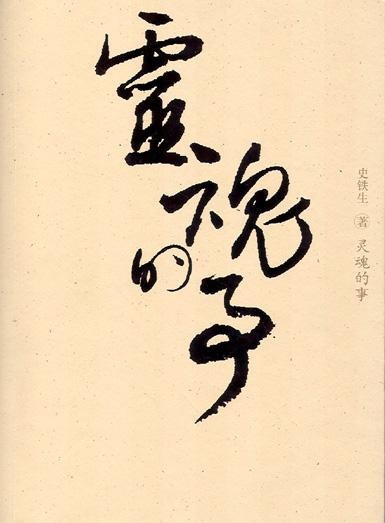 靈
魂
的
事
史铁生 著 灵魂的事